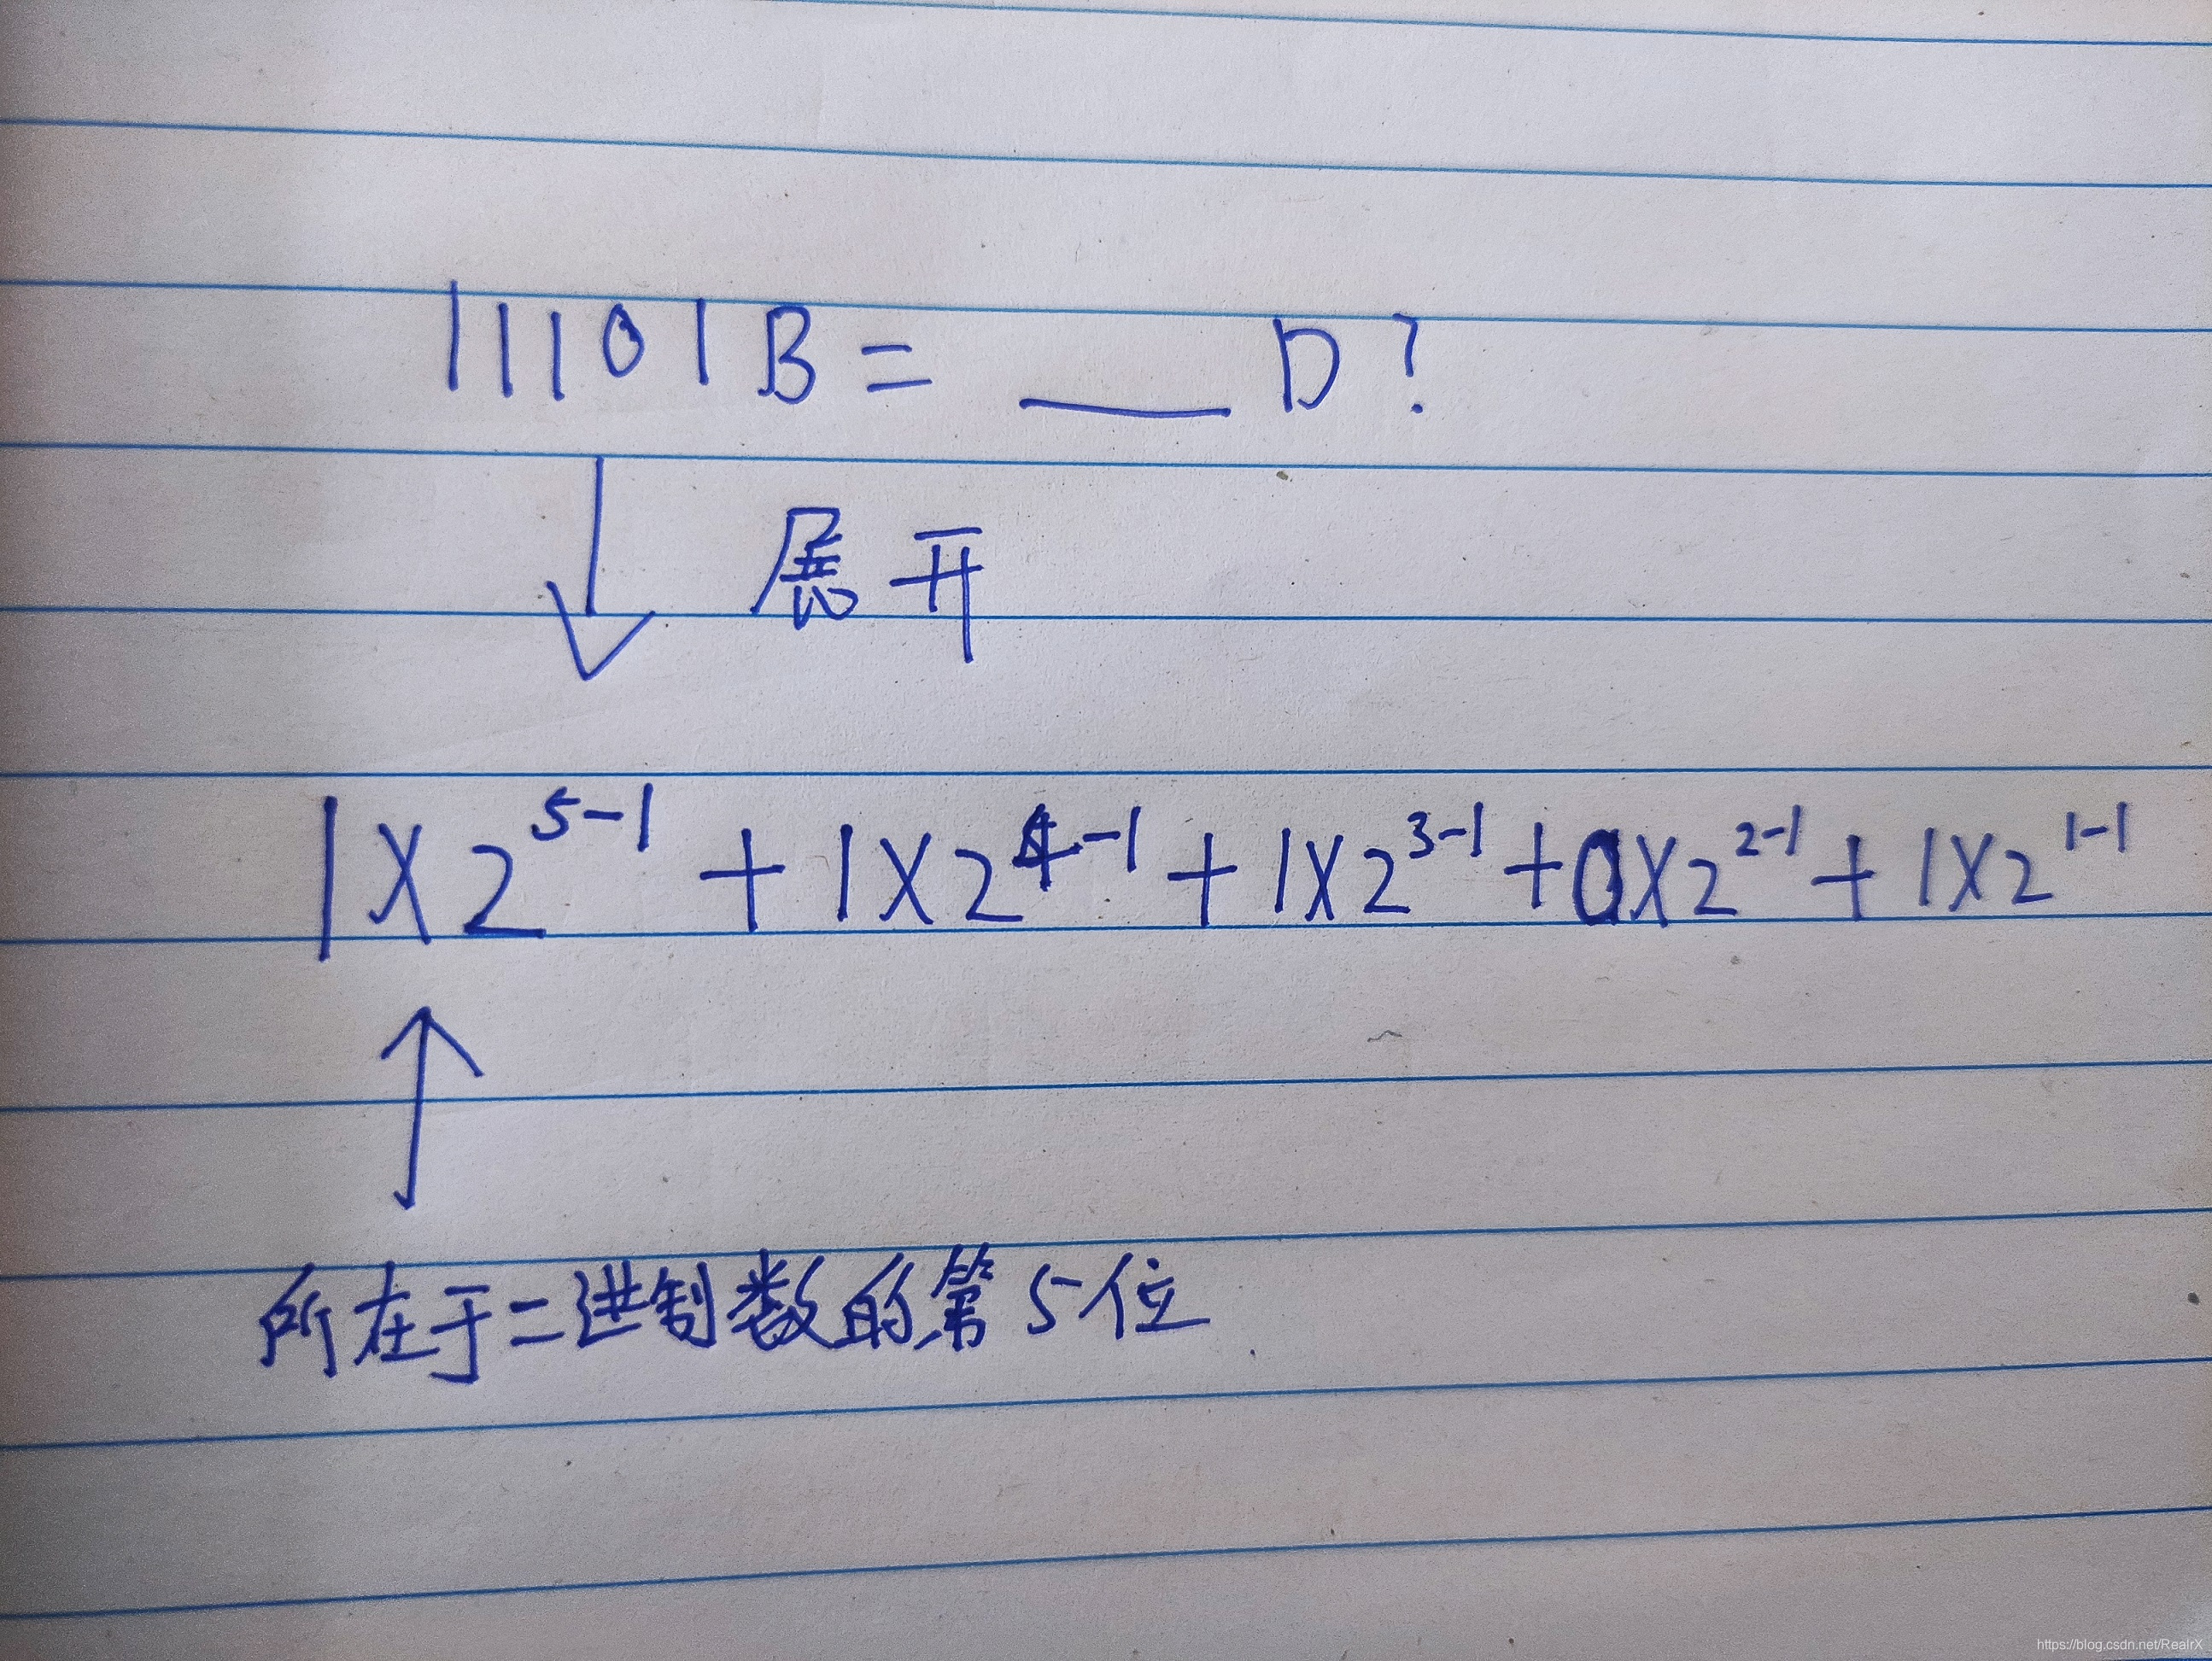 11101B = ___ D?
展开
1×2^5-1 + 1×2^4-1 + 1×2^3-1 + 0×2^2-1 + 1×2^1-1
所在于二进制数的第5位
https://blog.csdn.net/RealrX